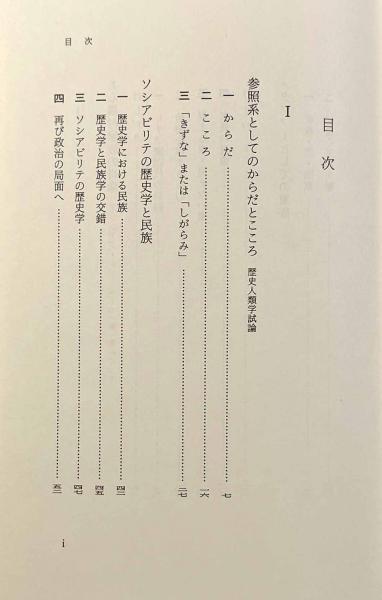 目次
目次
I
参照系としてのからだとこころ 歴史人類学試論
一 からだ……七
二 こころ……一六
三 「きずな」または「しがらみ」……二七
ソシアビリテの歴史学と民族
一 歴史学における民族……四三
二 歴史学と民族学の交錯……四五
三 ソシアビリテの歴史学……四七
四 再び政治の局面へ……五二
i